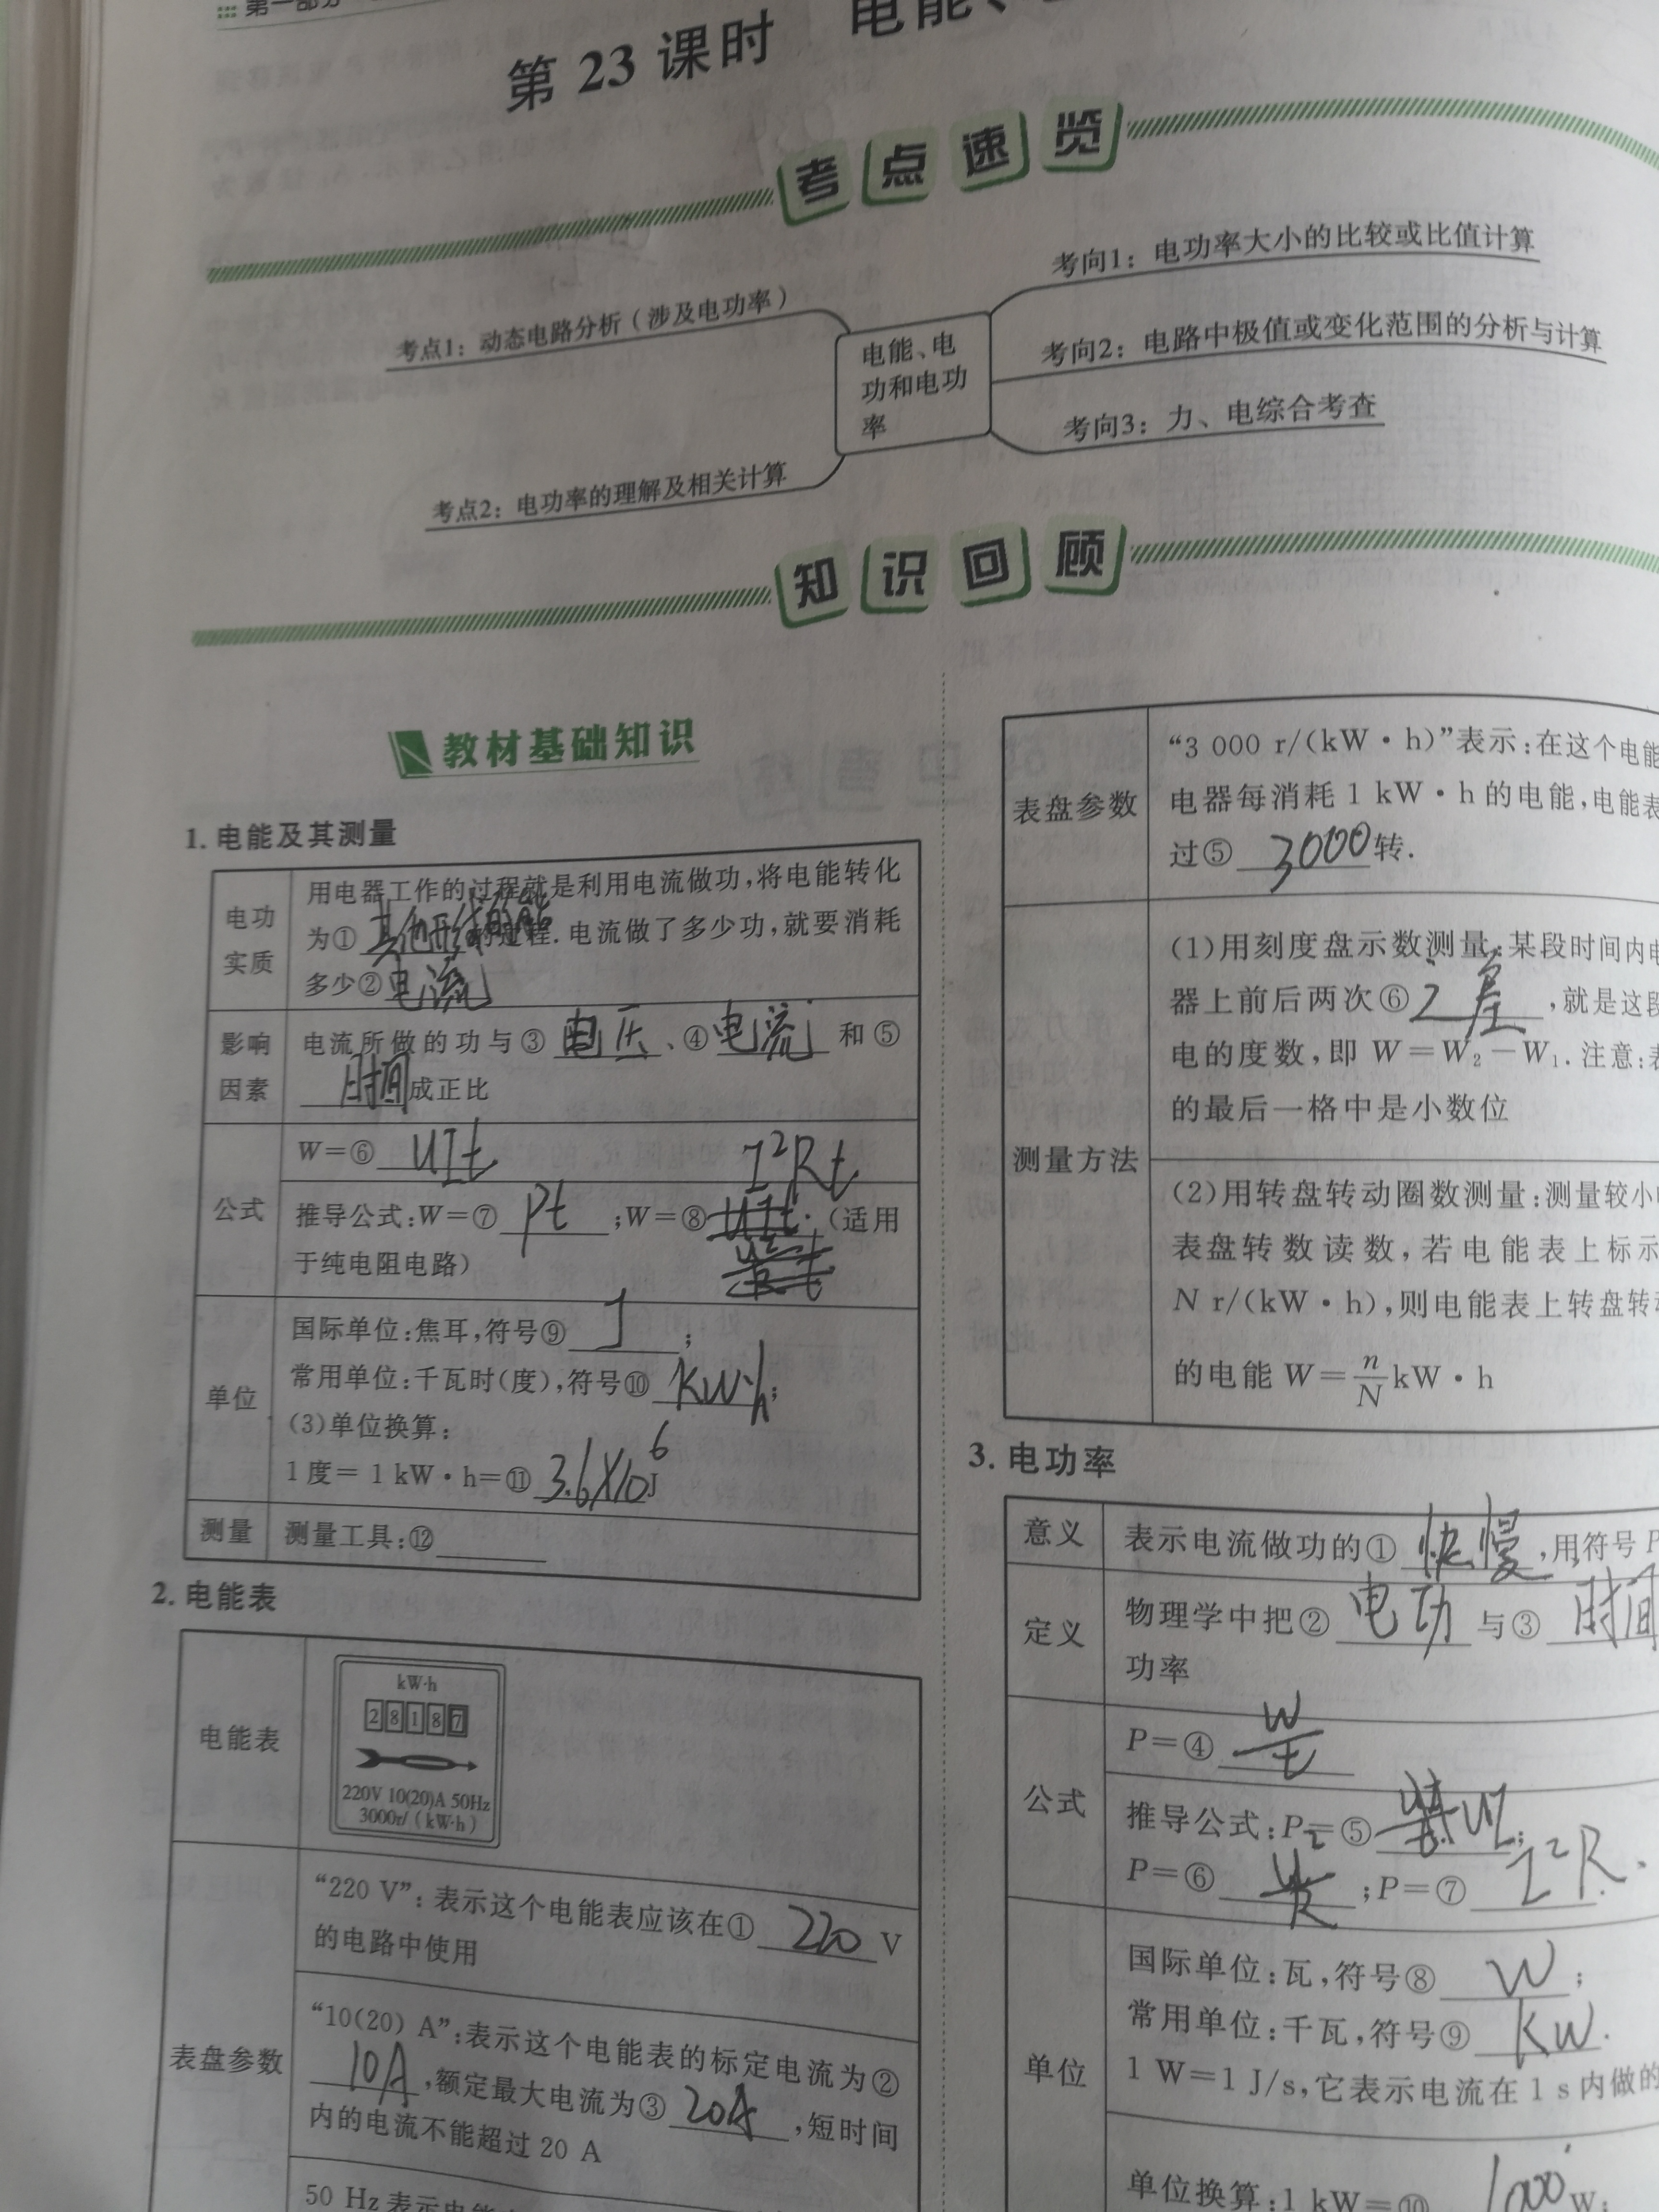 第一部分
第 23 课时 电能、
考点速览
考点1：动态电路分析（涉及电功率）
考点2：电功率的理解及相关计算
电能、电
功和电功
率
考向1：电功率大小的比较或比值计算
考向2：电路中极值或变化范围的分析与计算
考向3：力、电综合考查
知识回顾
教材基础知识
1. 电能及其测量
电功
实质
用电器工作的过程就是利用电流做功，将电能转化
为① 其他形式的能 的过程. 电流做了多少功，就要消耗
多少② 电流
影响
因素
电流所做的功与③ 电压 、④ 电流 和⑤
时间 成正比
公式
W=⑥ UIt
推导公式：W=⑦ Pt ；W=⑧ I²Rt （适用
于纯电阻电路）
单位
国际单位：焦耳，符号⑨ J ；
常用单位：千瓦时（度），符号⑩ KW·h ；
(3)单位换算：
1度= 1 kW·h=⑪ 3.6×10⁶ J
测量
测量工具：⑫
2. 电能表
电能表
kW·h
2 8 1 8 7
220V 10(20)A 50Hz
3000r/（kW·h）
表盘参数
“220 V”：表示这个电能表应该在① 220 V
的电路中使用
“10(20) A”：表示这个电能表的标定电流为②
10A ，额定最大电流为③ 20A ，短时间
内的电流不能超过 20 A
50 Hz 表示电能
表盘参数
“3 000 r/(kW·h)”表示：在这个电能
电器每消耗 1 kW·h 的电能，电能表
过⑤ 3000 转.
测量方法
(1)用刻度盘示数测量：某段时间内电
器上前后两次⑥ 之差 ，就是这段
电的度数，即 W=W₂-W₁. 注意：表
的最后一格中是小数位
(2)用转盘转动圈数测量：测量较小
表盘转数读数，若电能表上标示
N r/(kW·h)，则电能表上转盘转
的电能 W=n/N kW·h
3. 电功率
意义
表示电流做功的① 快慢 ，用符号 P
定义
物理学中把② 电功 与③ 时间
功率
公式
P=④ W/t
推导公式：P=⑤ UI ；
P=⑥ U²/R ；P=⑦ I²R .
单位
国际单位：瓦，符号⑧ W ；
常用单位：千瓦，符号⑨ KW .
1 W=1 J/s，它表示电流在 1 s 内做的
单位换算：1 kW=⑩ 1000 W；